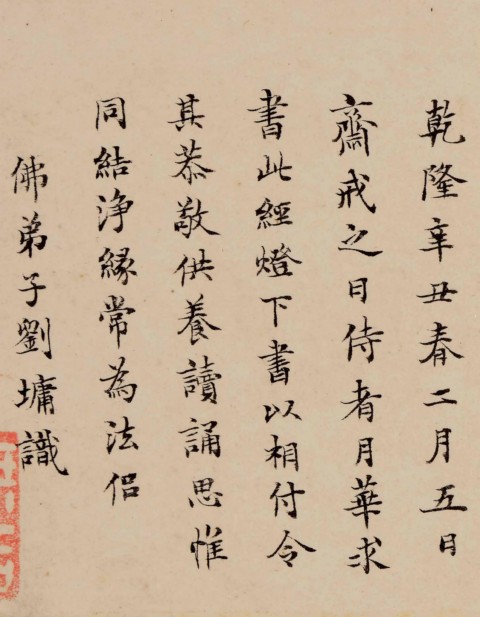 乾隆辛丑春二月五日
齋戒之日侍者月華求
書此經燈下書以相付令
其恭敬供養讀誦思惟
同結浄緣常為法侶
佛弟子劉墉識